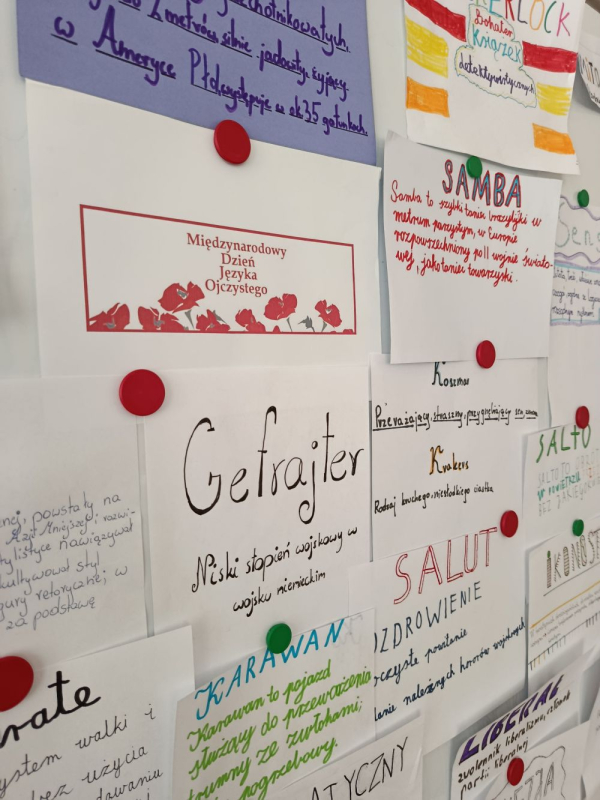 2 metrów silnie jadowity, żyjący
w Ameryce Płd, występuje w ok 35 gatunkach.
bohater
książek
detektywistycznych
SAMBA
Samba to szybki taniec brazylijski w
metrum parzystym, w Europie
rozpowszechniony po II wojnie świato-
wej, jako taniec towarzyski.
Międzynarodowy
Dzień
Języka
Ojczystego
Koszmar
Przerażający, straszny, przygnębiający sen,
Krakers
Rodzaj kruchego, niesłodkiego ciastka
Gefrajter
Niski stopień wojskowy w
wojsku niemieckim
powstały na
Azji Mniejszej; rozwi-
tylistyce nawiązywał
kultywował styl
gury retoryczne; w
za podstawę
SALTO
SALUT
OZDROWIENIE
czyste powstanie
danie należnych honorów wojskowych
IKONOST
KARAWAN
Karawan to pojazd
służący do przewożenia
trumny ze zwłokami;
pogrzebowy.
rate
system walki i
bez użycia
LIBERAŁ
zwolennik liberalizmu, członek
partii liberalnej